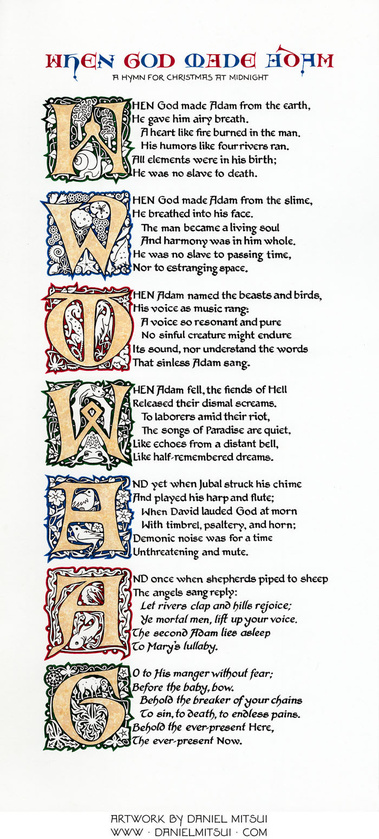 WHEN GOD MADE ADAM
A HYMN FOR CHRISTMAS AT MIDNIGHT
WHEN God made Adam from the earth,
He gave him airy breath.
A heart like fire burned in the man.
His humors like four rivers ran.
All elements were in his birth;
He was no slave to death.
WHEN God made Adam from the slime,
He breathed into his face.
The man became a living soul
And harmony was in him whole.
He was no slave to passing time,
Nor to estranging space.
THEN Adam named the beasts and birds,
His voice as music rang:
A voice so resonant and pure
No sinful creature might endure
Its sound, nor understand the words
That sinless Adam sang.
WHEN Adam fell, the fiends of Hell
Released their dismal screams.
To laborers amid their riot,
The songs of Paradise are quiet,
Like echoes from a distant bell,
Like half-remembered dreams.
AND yet when Jubal struck his chime
And played his harp and flute;
When David lauded God at morn
With timbrel, psaltery, and horn;
Demonic noise was for a time
Unthreatening and mute.
AND once when shepherds piped to sheep
The angels sang reply:
Let rivers clap and hills rejoice;
Ye mortal men, lift up your voice.
The second Adam lies asleep
To Mary's lullaby.
GO to His manger without fear;
Before the baby, bow.
Behold the breaker of your chains
To sin, to death, to endless pains.
Behold the ever-present Here,
The ever-present Now.
ARTWORK BY DANIEL MITSUI
WWW · DANIELMITSUI · COM